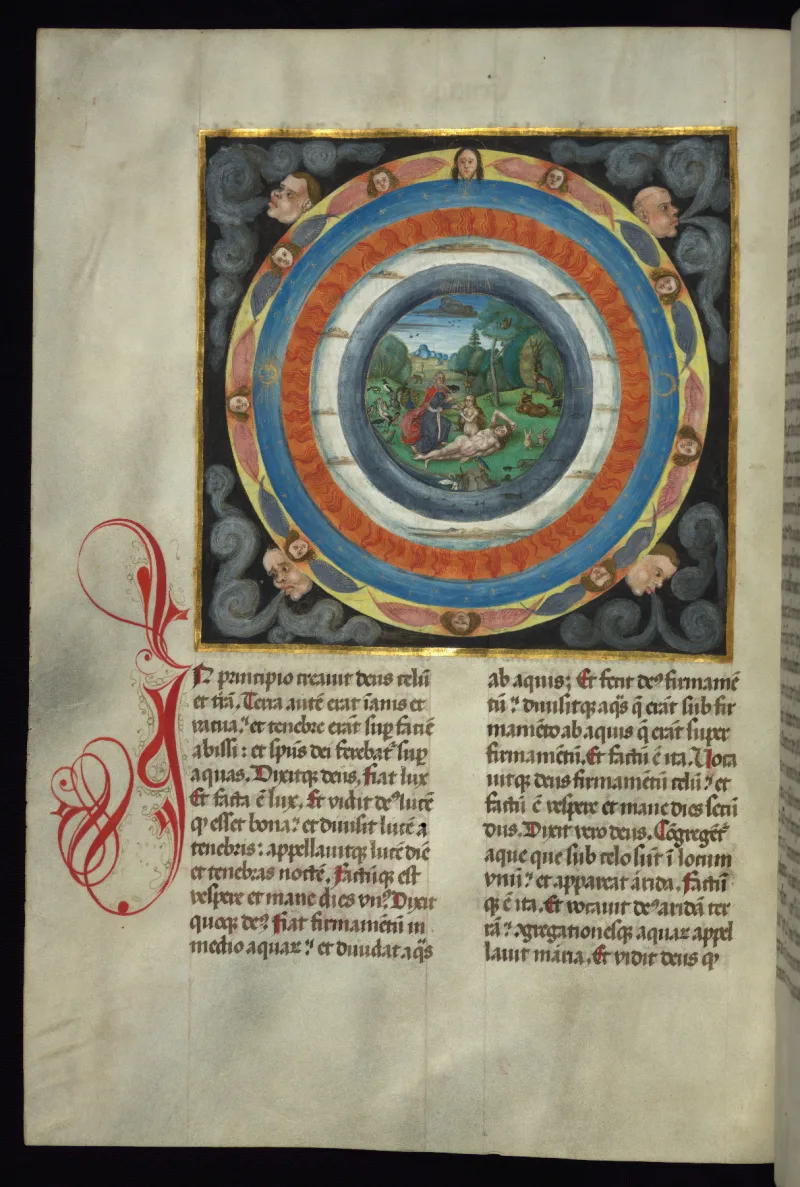 IN principio creavit deus celū
et trā. Terra autē erat īanis et
vacua: et tenebre erāt sup faciē
abissi: et spūs dei ferebat sup
aquas. Dixitq deus, fiat lux
Et facta ē lux. Et vidit deꝰ lucē
ꝙ esset bona: et divisit lucē a
tenebris: appellavitq lucē diē
et tenebras noctē. Factūq est
vespere et mane dies vnꝰ. Dixit
quoq deꝰ Fiat firmamētū in
medio aquaꝝ: et dividat aqs
ab aquis; Et fecit deꝰ firmamē
tū: divisitq aqs q erāt sub fir
mamēto ab aquis q erāt super
firmamētū. Et factū ē ita. Voca
vitq deus firmamētū celū: et
factū ē vespere et mane dies secū
dus. Dixit vero deus. Cōgregēt
aque que sub celo sūt ī locum
vnū: et appareat arida. Factū
q ē ita. Et vocavit deꝰ aridā ter
rā: ꝯgregationesq aquaꝝ appel
lavit maria. Et vidit deus ꝙ